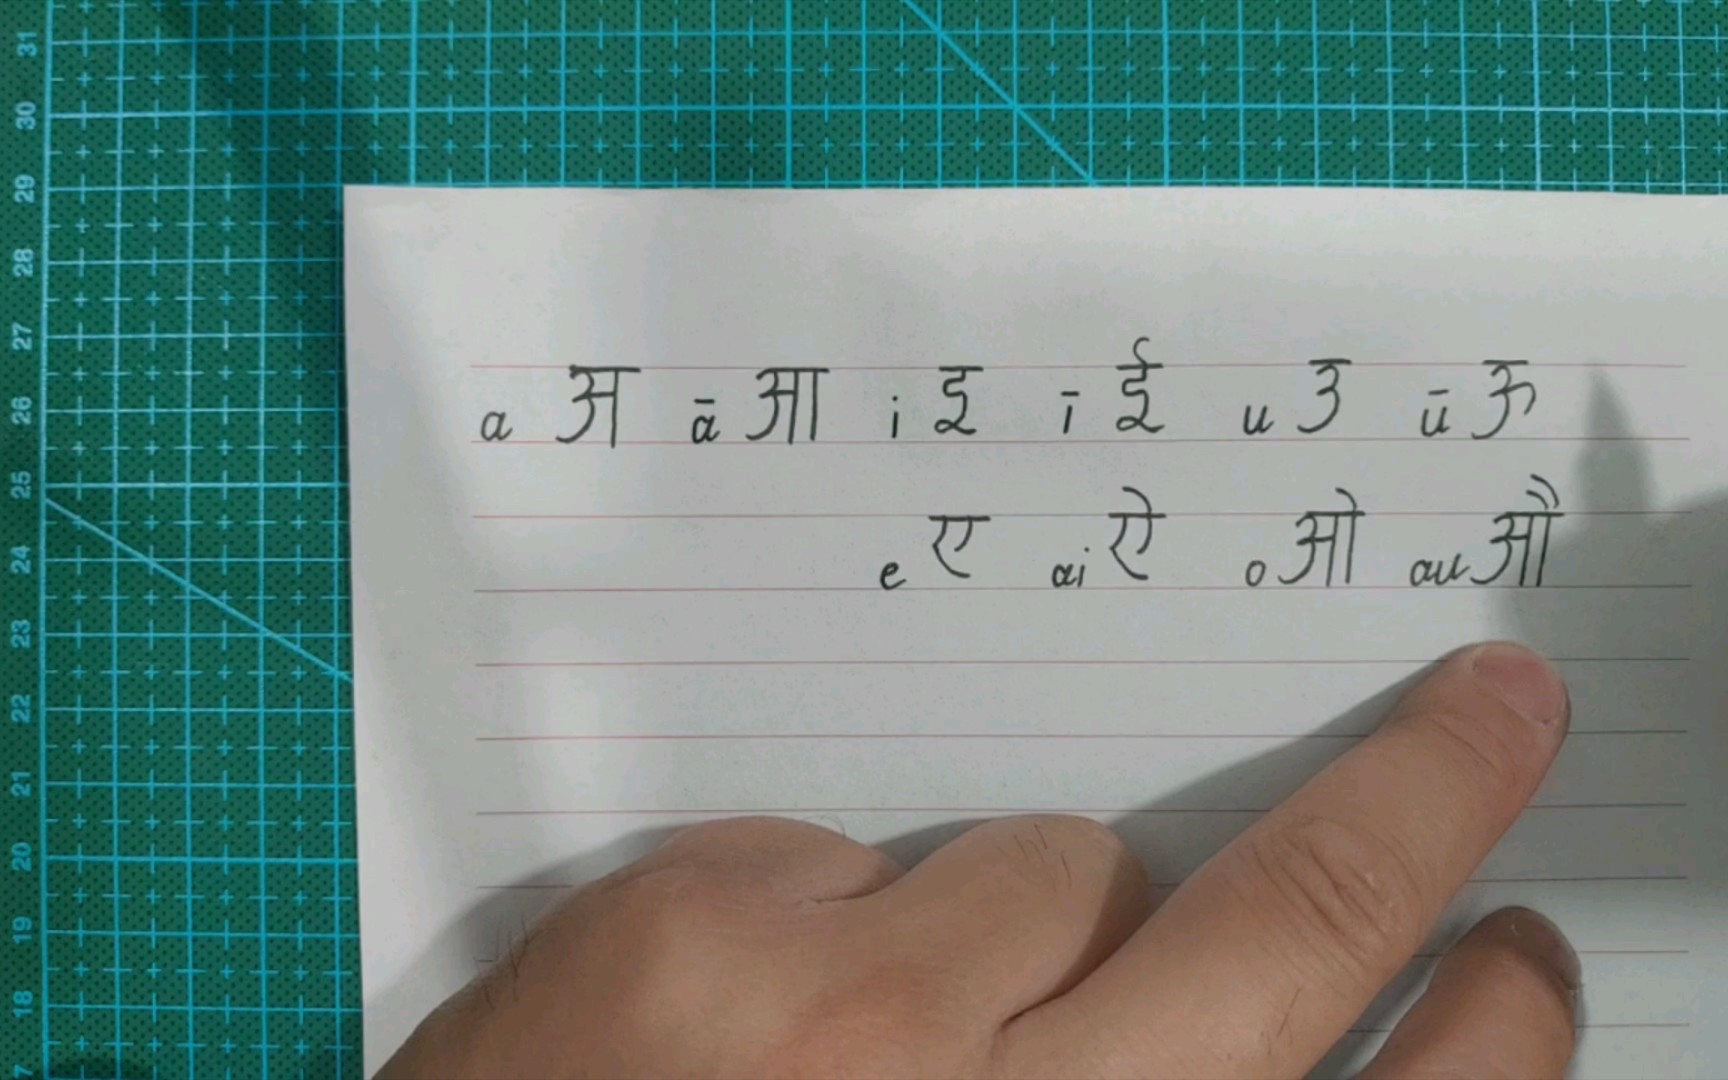 a अ ā आ i इ ī ई u उ ū ऊ
e ए ai ऐ o ओ au औ
31
30
29
28
27
26
25
24
23
22
21
20
19
18
7